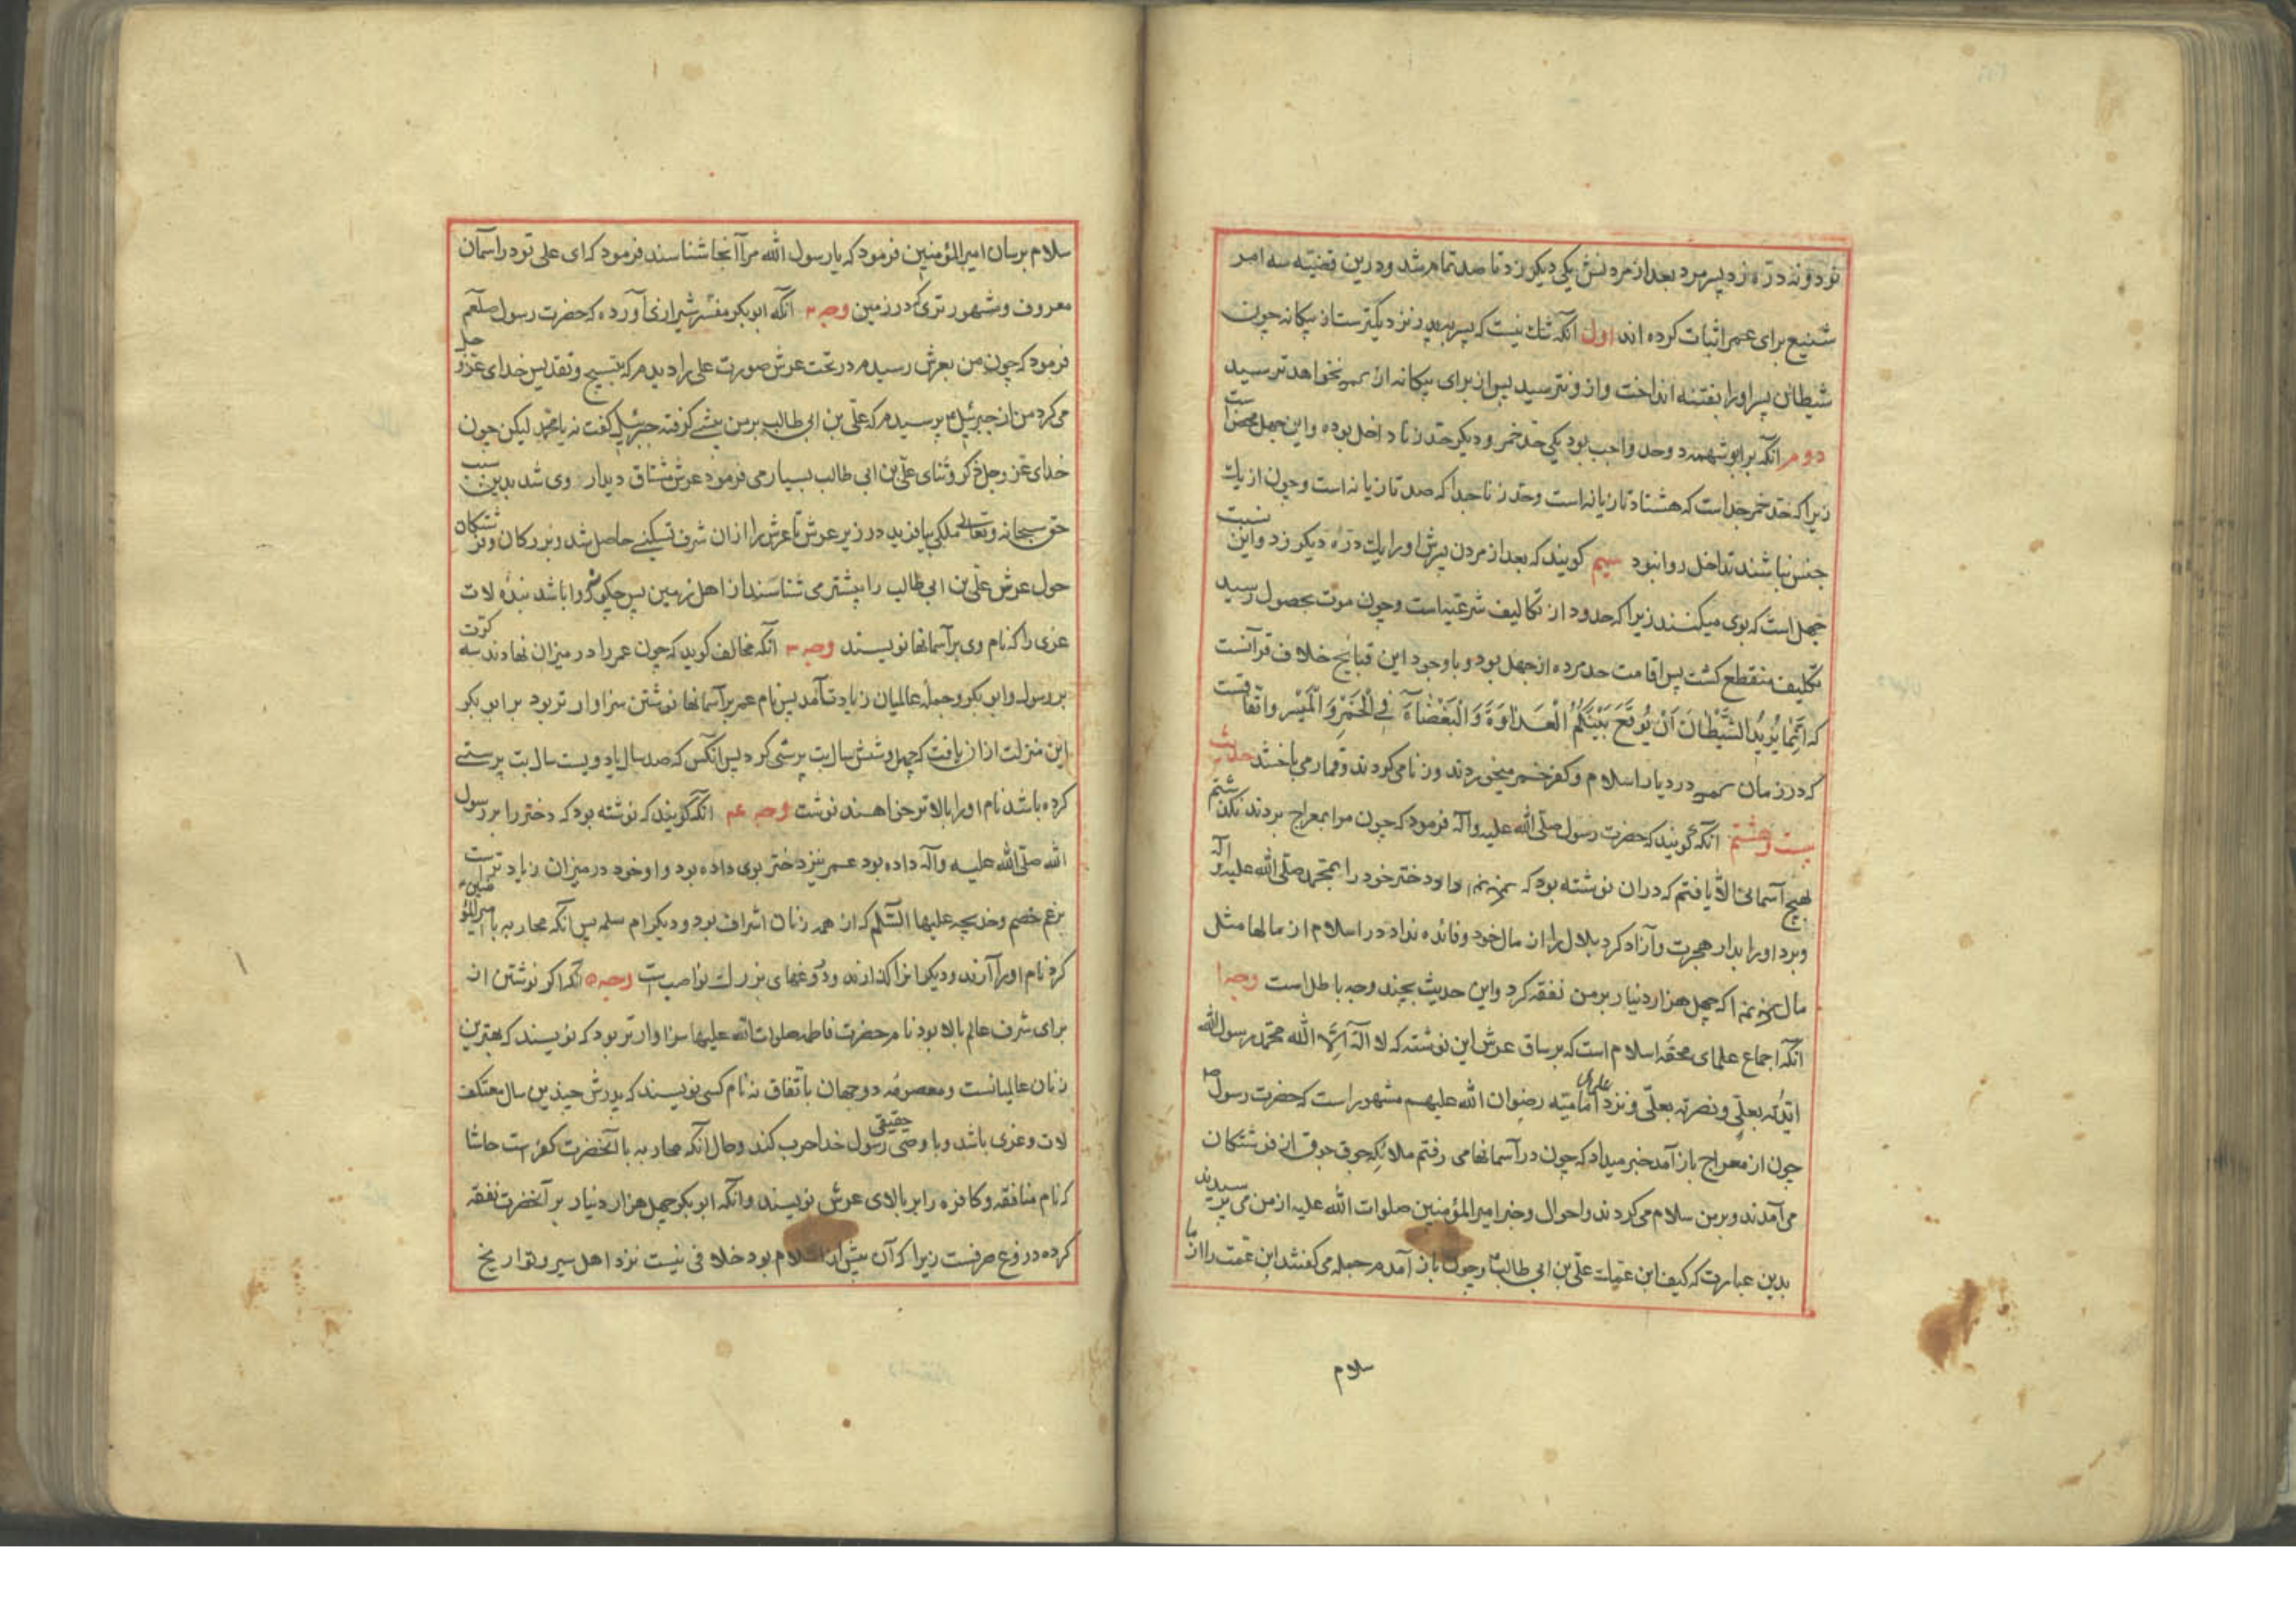 نود و نه دره زد پسر مرد بعد از مردنش یکی دیکر زد تا صد تمام شد و درین قضیه سه امر
شنیع برای عمر اثبات کرده اند اول آنکه شك نیست که پسر بپدر نزدیکتر ست از بیکانه چون
شیطان پسر او را بفتنه انداخت و از و نترسید پس از برای بیکانه از نخواهد ترسید
دوم آنکه بر ابو شهمه دو حد واجب بود یکی حد خمر و دیکر حد زنا داخل بوده و این جهل محض است
زیرا که حد خمر جداست که هشتاد تازیانه است و حد زنا جدا که صد تازیانه است و چون از یك
جنس نباشند تداخل روا نبود سیم کویند که بعد از مردن پسرش او را یك دره دیکر زد و این نسبت
جهل است که بوی میکنند زیرا که حدود از تکالیف شرعیه است و چون موت بحصول رسید
تکلیف منقطع کشت پس اقامت حد مرده از جهل بود و با وجود این قبایح خلاف قرآنست
که انما یرید الشیطان ان یوقع بینکم العداوة و البغضآء فی الخمر و المیسر و اتفاقست
که در زمان در دیار اسلام و کفر خمر میخوردند و زنا می کردند و قمار می باختند حدیث
بیست و هشتم آنکه کویند که حضرت رسول صلی الله علیه و آله فرمود که چون مرا بمعراج بردند نکذشتم
بهیچ آسمانی الا یافتم که در ان نوشته بود که او داد دختر خود را بمحمد صلی الله علیه و آله
و برد او را بدار هجرت و آزاد کرد بلال را از مال خود و فائده نداد در اسلام از مالها مثل
مال که چهل هزار دنیار بر من نفقه کرد و این حدیث بچند وجه باطل است وجه ۱
آنکه اجماع علمای محقه اسلام است که بر ساق عرش این نوشته که لا اله الا الله محمد رسول الله
ایدته بعلی و نصرته بعلی و نزد علمای امامیه رضوان الله علیهم مشهور است که حضرت رسول ص
چون از معراج باز آمد خبر میداد که چون در آسمانها می رفتم ملائکه جوق جوق از فرشتکان
می آمدند و بر من سلام می کردند و احوال و خبر امیر المؤمنین صلوات الله علیه از من می پرسیدند
بدین عبارت که کیف ابن عمك علی بن ابی طالب و چون باز آمدم جمله می کفتند ابن عمت را از ما
سلام
سلام برسان امیر المؤمنین فرمود که یا رسول الله مرا آنجا شناسند فرمود که ای علی تو در آسمان
معروف و مشهور تری که در زمین وجه ۲ آنکه ابو بکر مفسر شیرازی آورده که حضرت رسول صلعم
فرمود که چون من بعرش رسیدم در تحت عرش صورت علی را دیدم که بتسبیح و تقدیس خدای عز و جل
می کرد من از جبرئیل پرسیدم که علی بن ابی طالب بر من پیشی کرفته جبرئیل کفت نه یا محمد لیکن چون
خدای عز و جل ذکر و ثنای علی بن ابی طالب بسیار می فرمود عرش مشتاق دیدار وی شد بدین سبب
حق سبحانه و تعالی ملکی بیافرید در زیر عرش تا عرش را از ان شرف تسکینی حاصل شد و بزرکان و فرشتکان
حول عرش علی بن ابی طالب را بیشتر می شناسند از اهل زمین پس چکونه روا باشد بنده لات
عزی را که نام وی بر آسمانها نویسند وجه ۳ آنکه مخالف کوید که چون عمر را در میزان نهادند سه کرت
بر رسول و ابو بکر و جمله عالمیان زیادت آمد پس نام عمر بر آسمانها نوشتن سزاوار تر بود بر ابو بکر
این منزلت از ان یافت که چهل و شش سال بت پرستی کرد پس انکس که صد سال یا دویست سال بت پرستی
کرده باشد نام او را بالاتر خواهند نوشت وجه ۴ آنکه کویند که نوشته بود که دختر را بر رسول
الله صلی الله علیه و آله داده بود عمر نیز دختر بوی داده بود و او خود در میزان زیادترست
بزعم خصم و خدیجه علیها السلام که از همه زنان اشراف بود و دیکر ام سلمه پس آنکه محاربه با امیر المؤمنین
کرد نام او را آرند و دیکرانرا کذارند و دروغهای بزرك نواصب است وجه ۵ آنکه اکر نوشتن از
برای شرف عالم بالا بود نام حضرت فاطمه صلوات الله علیها سزاوار تر بود که نویسند که بهترین
زنان عالمیانست و معصومه دو جهان باتفاق نه نام کسی نویسند که پدرش چندین سال معتکف
لات و عزی باشد و با وصی حقیقی رسول خدا حرب کند و حال آنکه محاربه با آنحضرت کفر است حاشا
که نام منافقه و کافره را بر بالای عرش نویسند و آنکه ابو بکر چهل هزار دنیار بر آنحضرت نفقه
کرده دروغ صرفست زیرا که آن پیش از اسلام بود خلافی نیست نزد اهل سیر و تواریخ